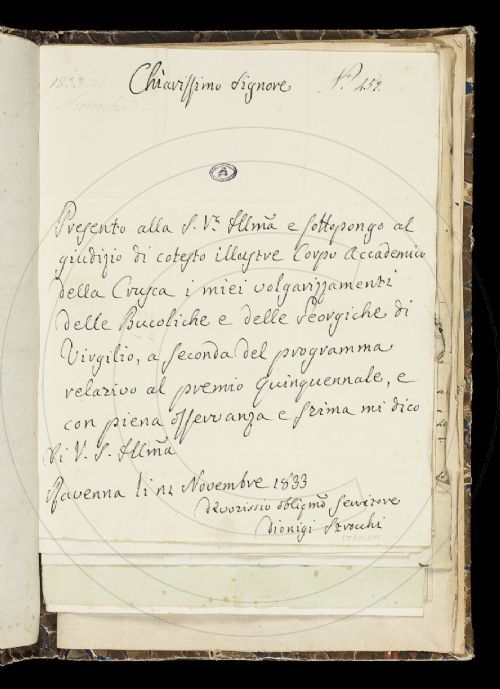 1833. 21.
Novembre
Chiarissimo Signore
N.º 457.
A
Presento alla S. V.ª Illm̃a e sottopongo al
giudizio di cotesto illustre Corpo Accademico
della Crusca i miei volgarizzamenti
delle Bucoliche e delle Georgiche di
Virgilio, a seconda del programma
relativo al premio quinquennale, e
con piena osservanza e stima mi dico
Di V. S. Illm̃a
Ravenna li 21 Novembre 1833
Devotissio obligmõ Servitore
Dionigi Strocchi
STROCCHI